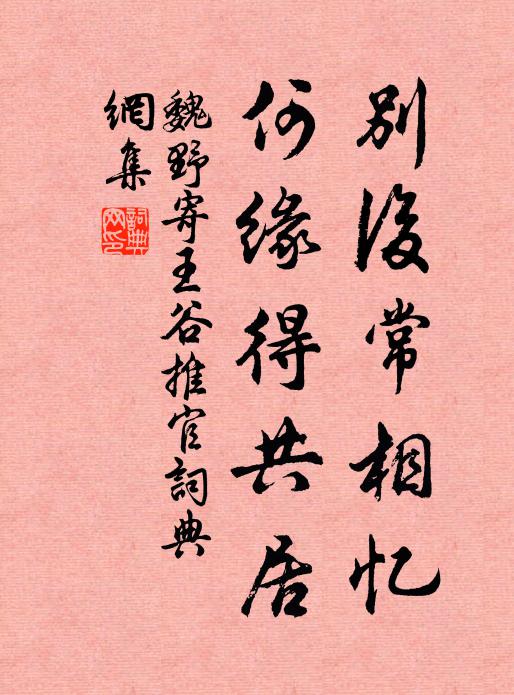 別後常相忆
何緣得共居
魏野寄王谷推官詞典
網集
詞典網印